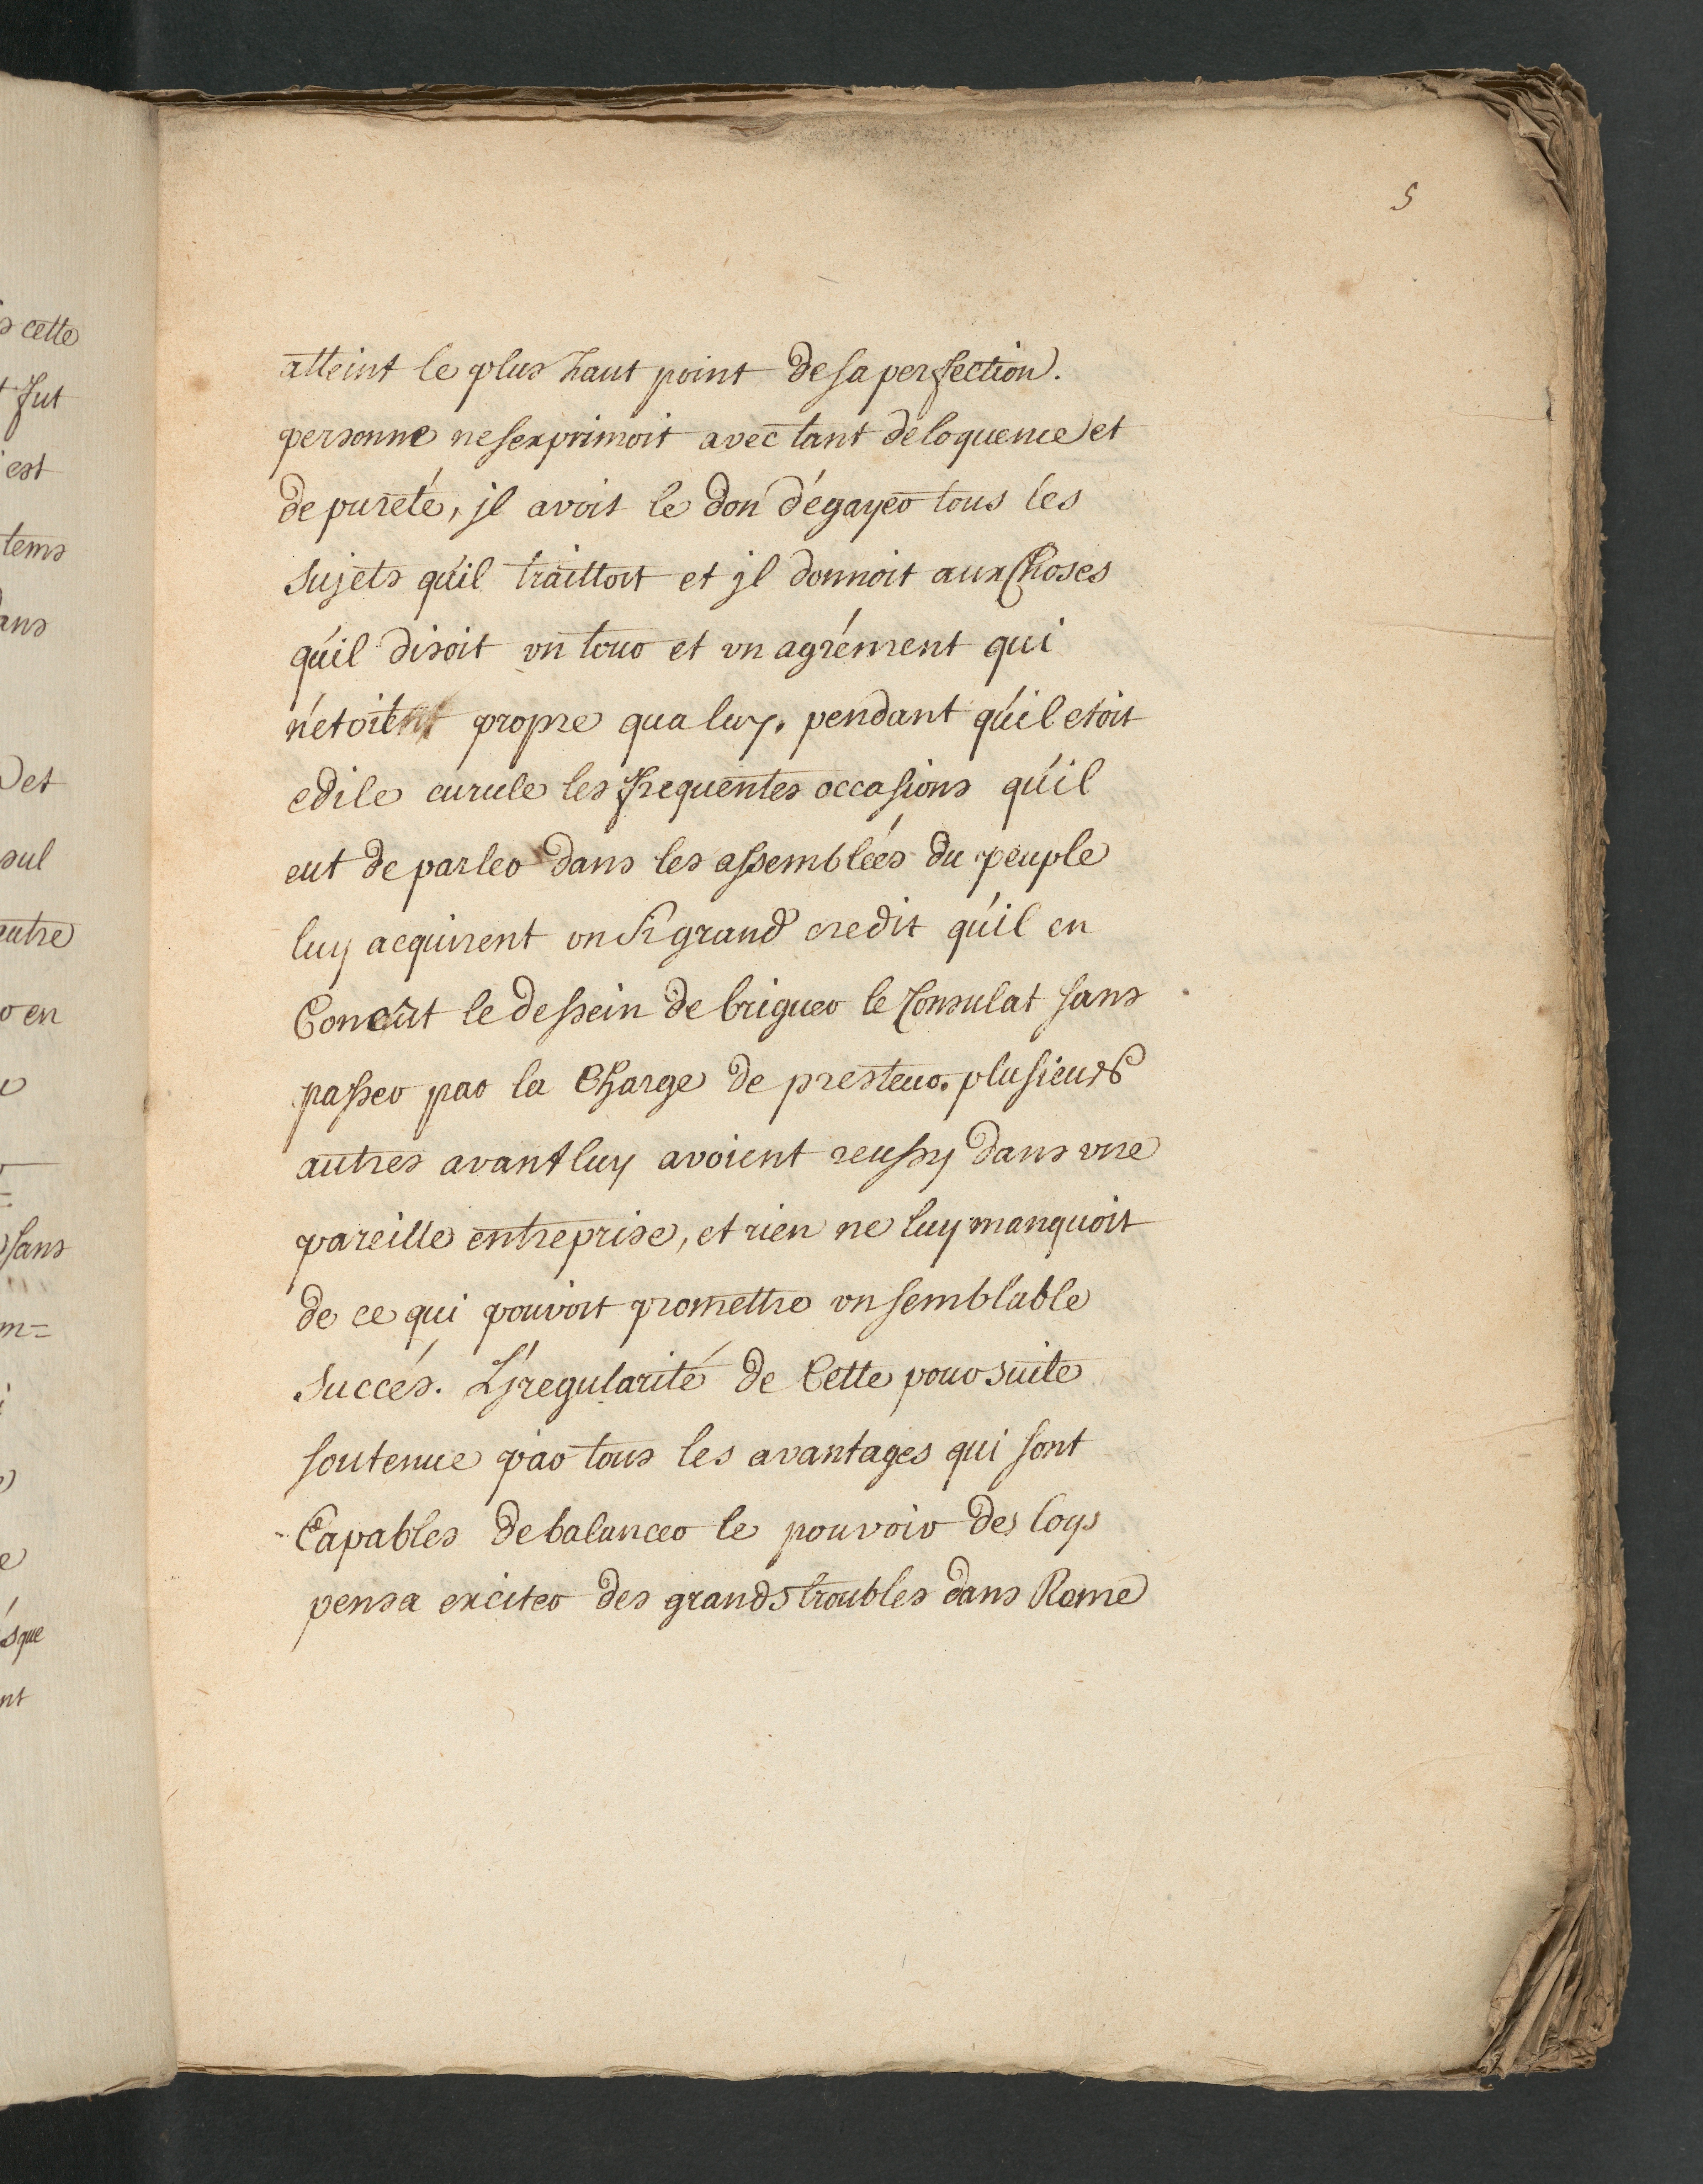 5
s cette
t fut
est
tems
ans
et
sul
autre
en
sans
m=
ésque
nt
atteint le plus haut point de sa perfection.
personne ne sexprimoit avec tant deloquence et
de pureté, jl avoit le don d'égayer tous les
sujets qu'il traittoit et jl donnoit aux Choses
qu'il disoit vn tour et vn agrément qui
n'etoient propre qua luy. pendant qu'il etoit
edile curule les frequentes occasions qu'il
eut de parler dans les assemblées du peuple
luy acquirent vn si grand credit qu'il en
Conçût le dessein de briguer le Consulat sans
passer par la Charge de presteur. plusieurs
autres avant luy avoient reussy dans vne
pareille entreprise, et rien ne luy manquoit
de ce qui pouvoit promettre vn semblable
succés. L'jregularité de Cette poursuite
soutenue par tous les avantages qui sont
Capables de balancer le pouvoir des loys
pensa exciter des grands troubles dans Rome